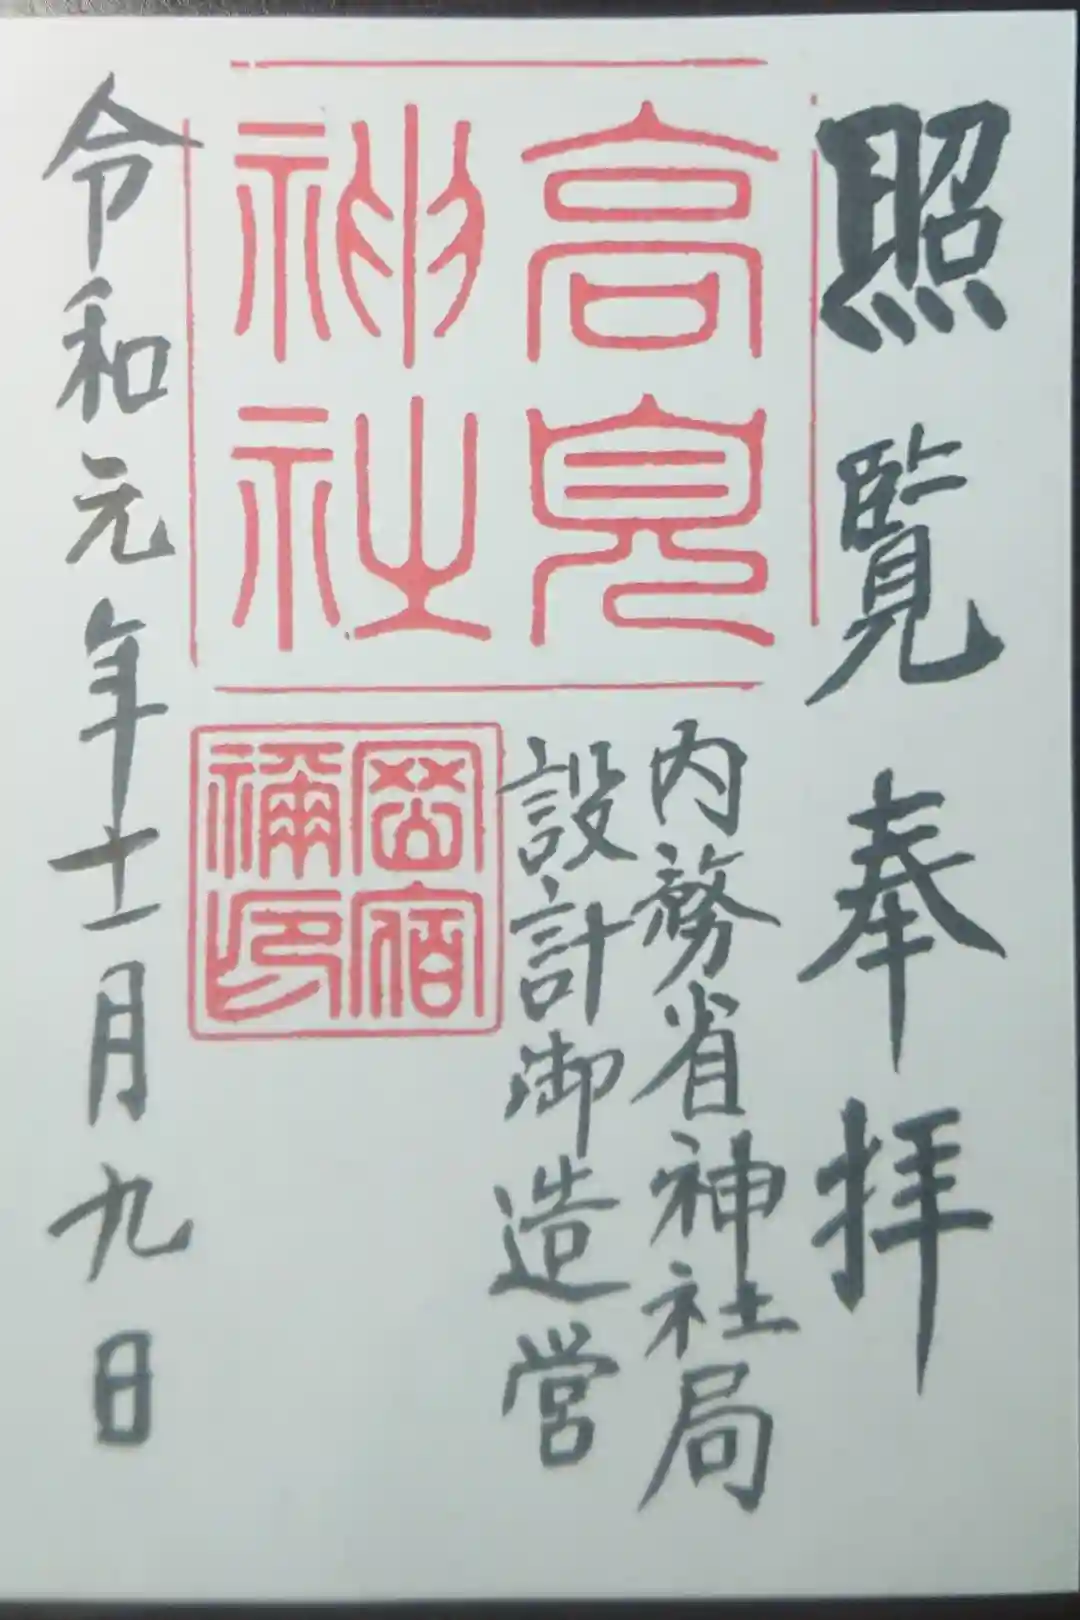 照覧奉拝
内務省神社局
設計御造営
高見
神社
岡宿
禰印
令和元年十一月九日